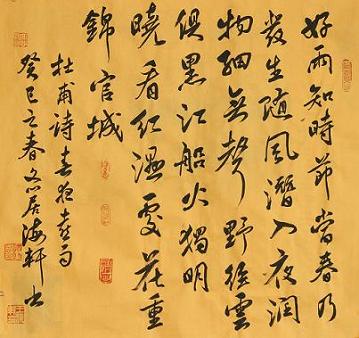 好雨知時節當春乃
發生随風潛入夜潤
物細無聲野徑雲
俱黑江船火獨明
曉看红濕處花重
錦官城
杜甫诗春夜喜雨
癸巳之春居海軒书